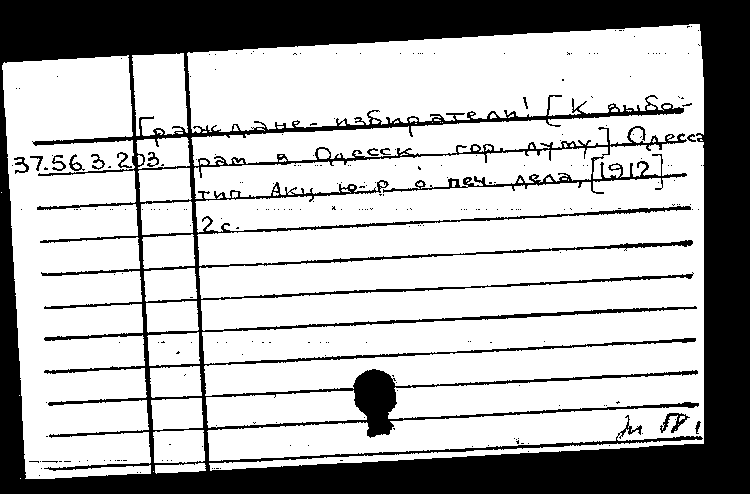 Граждане-избиратели! [К выбо-
37.56.3.203. рам в Одесск. гор. думу.] Одесса
тип. Акц. ю.-р. о. печ. дела, [1912]
2 с.